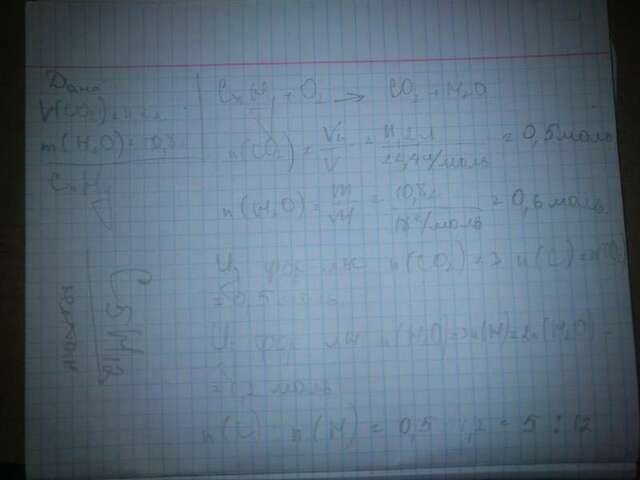 Дано
V(CO₂) = 11,2 л
m(H₂O) = 10,8 г
CxHy
CxHy + O₂ → CO₂ + H₂O
n(CO₂) = V / V = 11,2 л / 22,4 л/моль = 0,5 моль
n(H₂O) = m / M = 10,8 г / 18 г/моль = 0,6 моль
Из формулы n(CO₂) => n(C) = n(CO₂)
= 0,5 моль
Из формулы n(H₂O) => n(H) = 2n(H₂O) =
= 1,2 моль
n(C) : n(H) = 0,5 : 1,2 = 5 : 12
C₅H₁₂
пентан